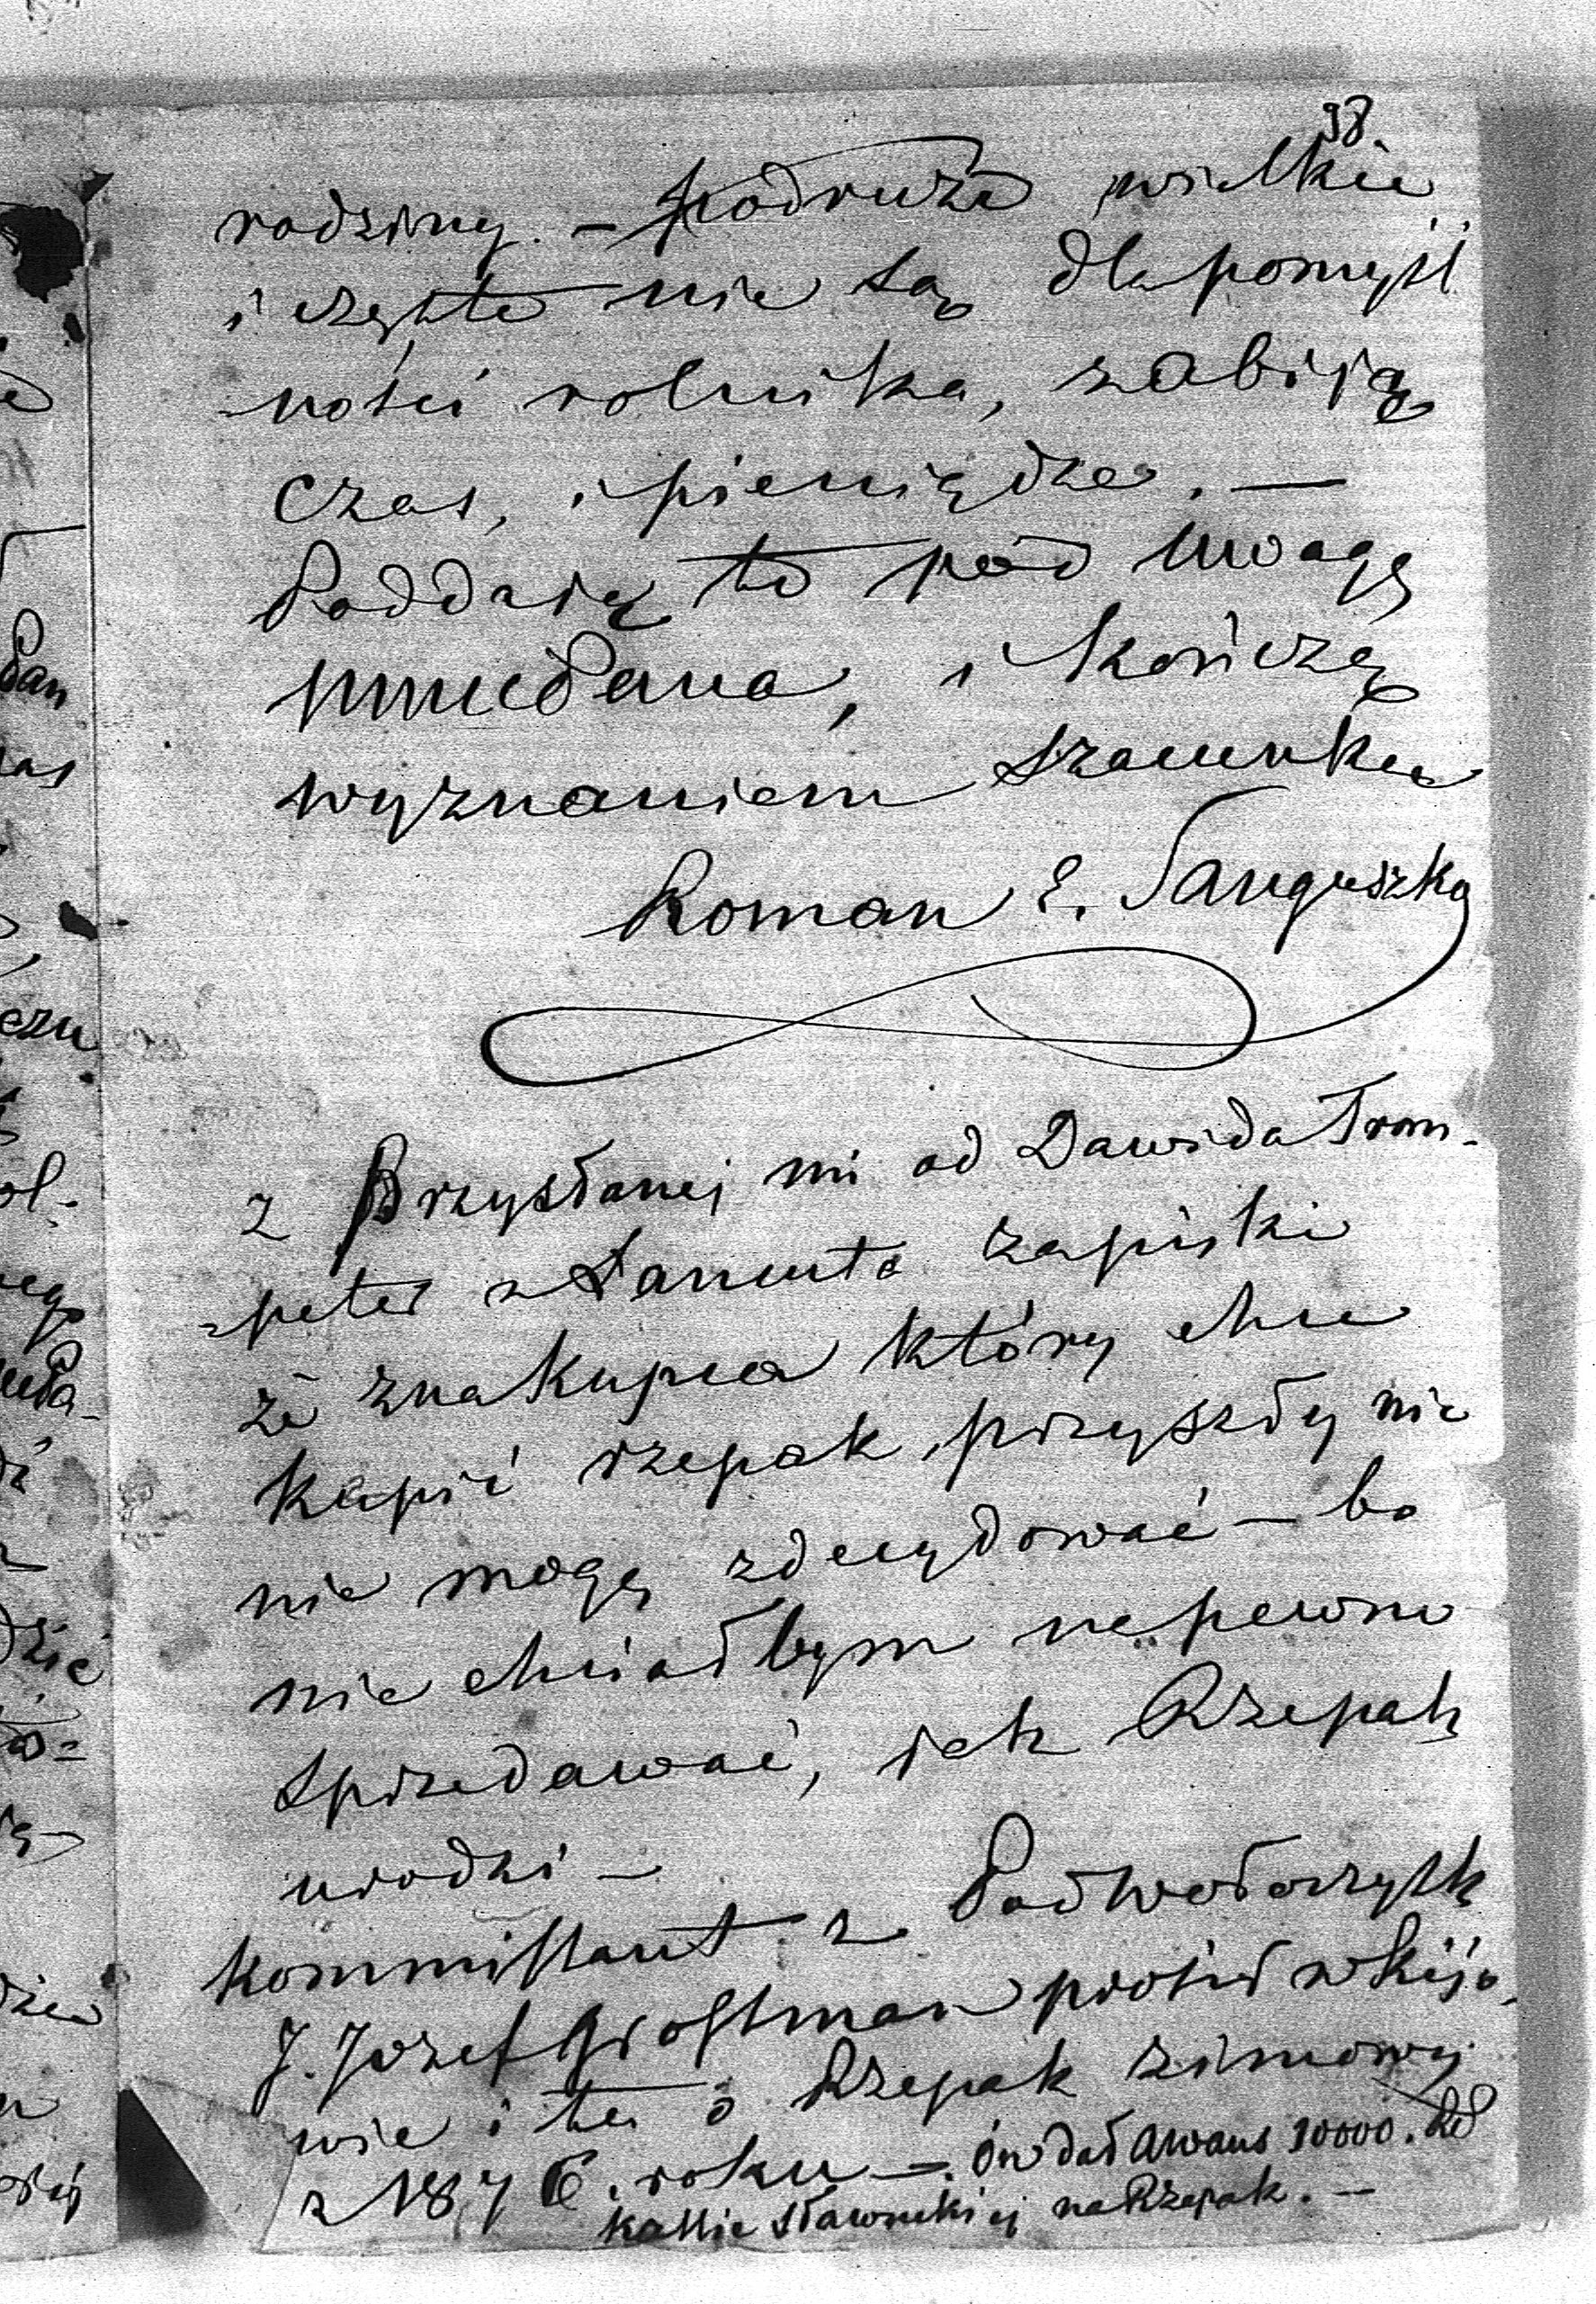 98.
rodziny. – podruże wielkie
i częste nie są dla pomyśl
-ności rolnika, zabiją
czas, i pieniądze. —
Poddaię to pod uwagę
WmćPana, i kończę
wyznaniem szacunku
Roman E. Sanguszko
z Przysłanej mi od Dawida Trom-
-peter z Łancuta zapiski
że zna kupca który chce
kupić rzepak przyszły nic
nie mogę zdecydować – bo
nie chciałbym niepewno
sprzedawać, jak Rzepak
urodzi –
Kommissant z Podwołoczysk
J. Jozef Grossman prosił w Kijo-
wie i też o Rzepak zimowy
z 1876. roku —. ón dał Awans 10000. Rł
Kassie Sławuckiej na Rzepak. –